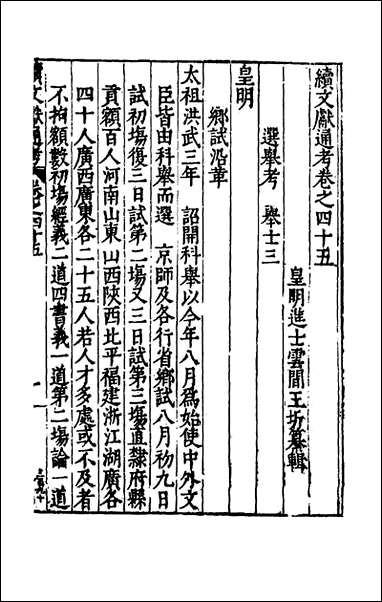 續文獻通考卷之四十五
皇明進士雲間王圻纂輯
選舉考　舉士三
皇明
鄉試沿革
太祖洪武三年　詔開科舉以今年八月爲始使中外文
臣皆由科舉而選　京師及各行省鄉試八月初九日
試初場復三日試第二場又三日試第三場直隸府縣
貢額百人河南山東山西陝西北平福建浙江湖廣各
四十人廣西廣東各二十五人若人才多處或不及者
不拘額數初場經義二道四書義一道第二場論一道
續文獻通考　卷之四十五